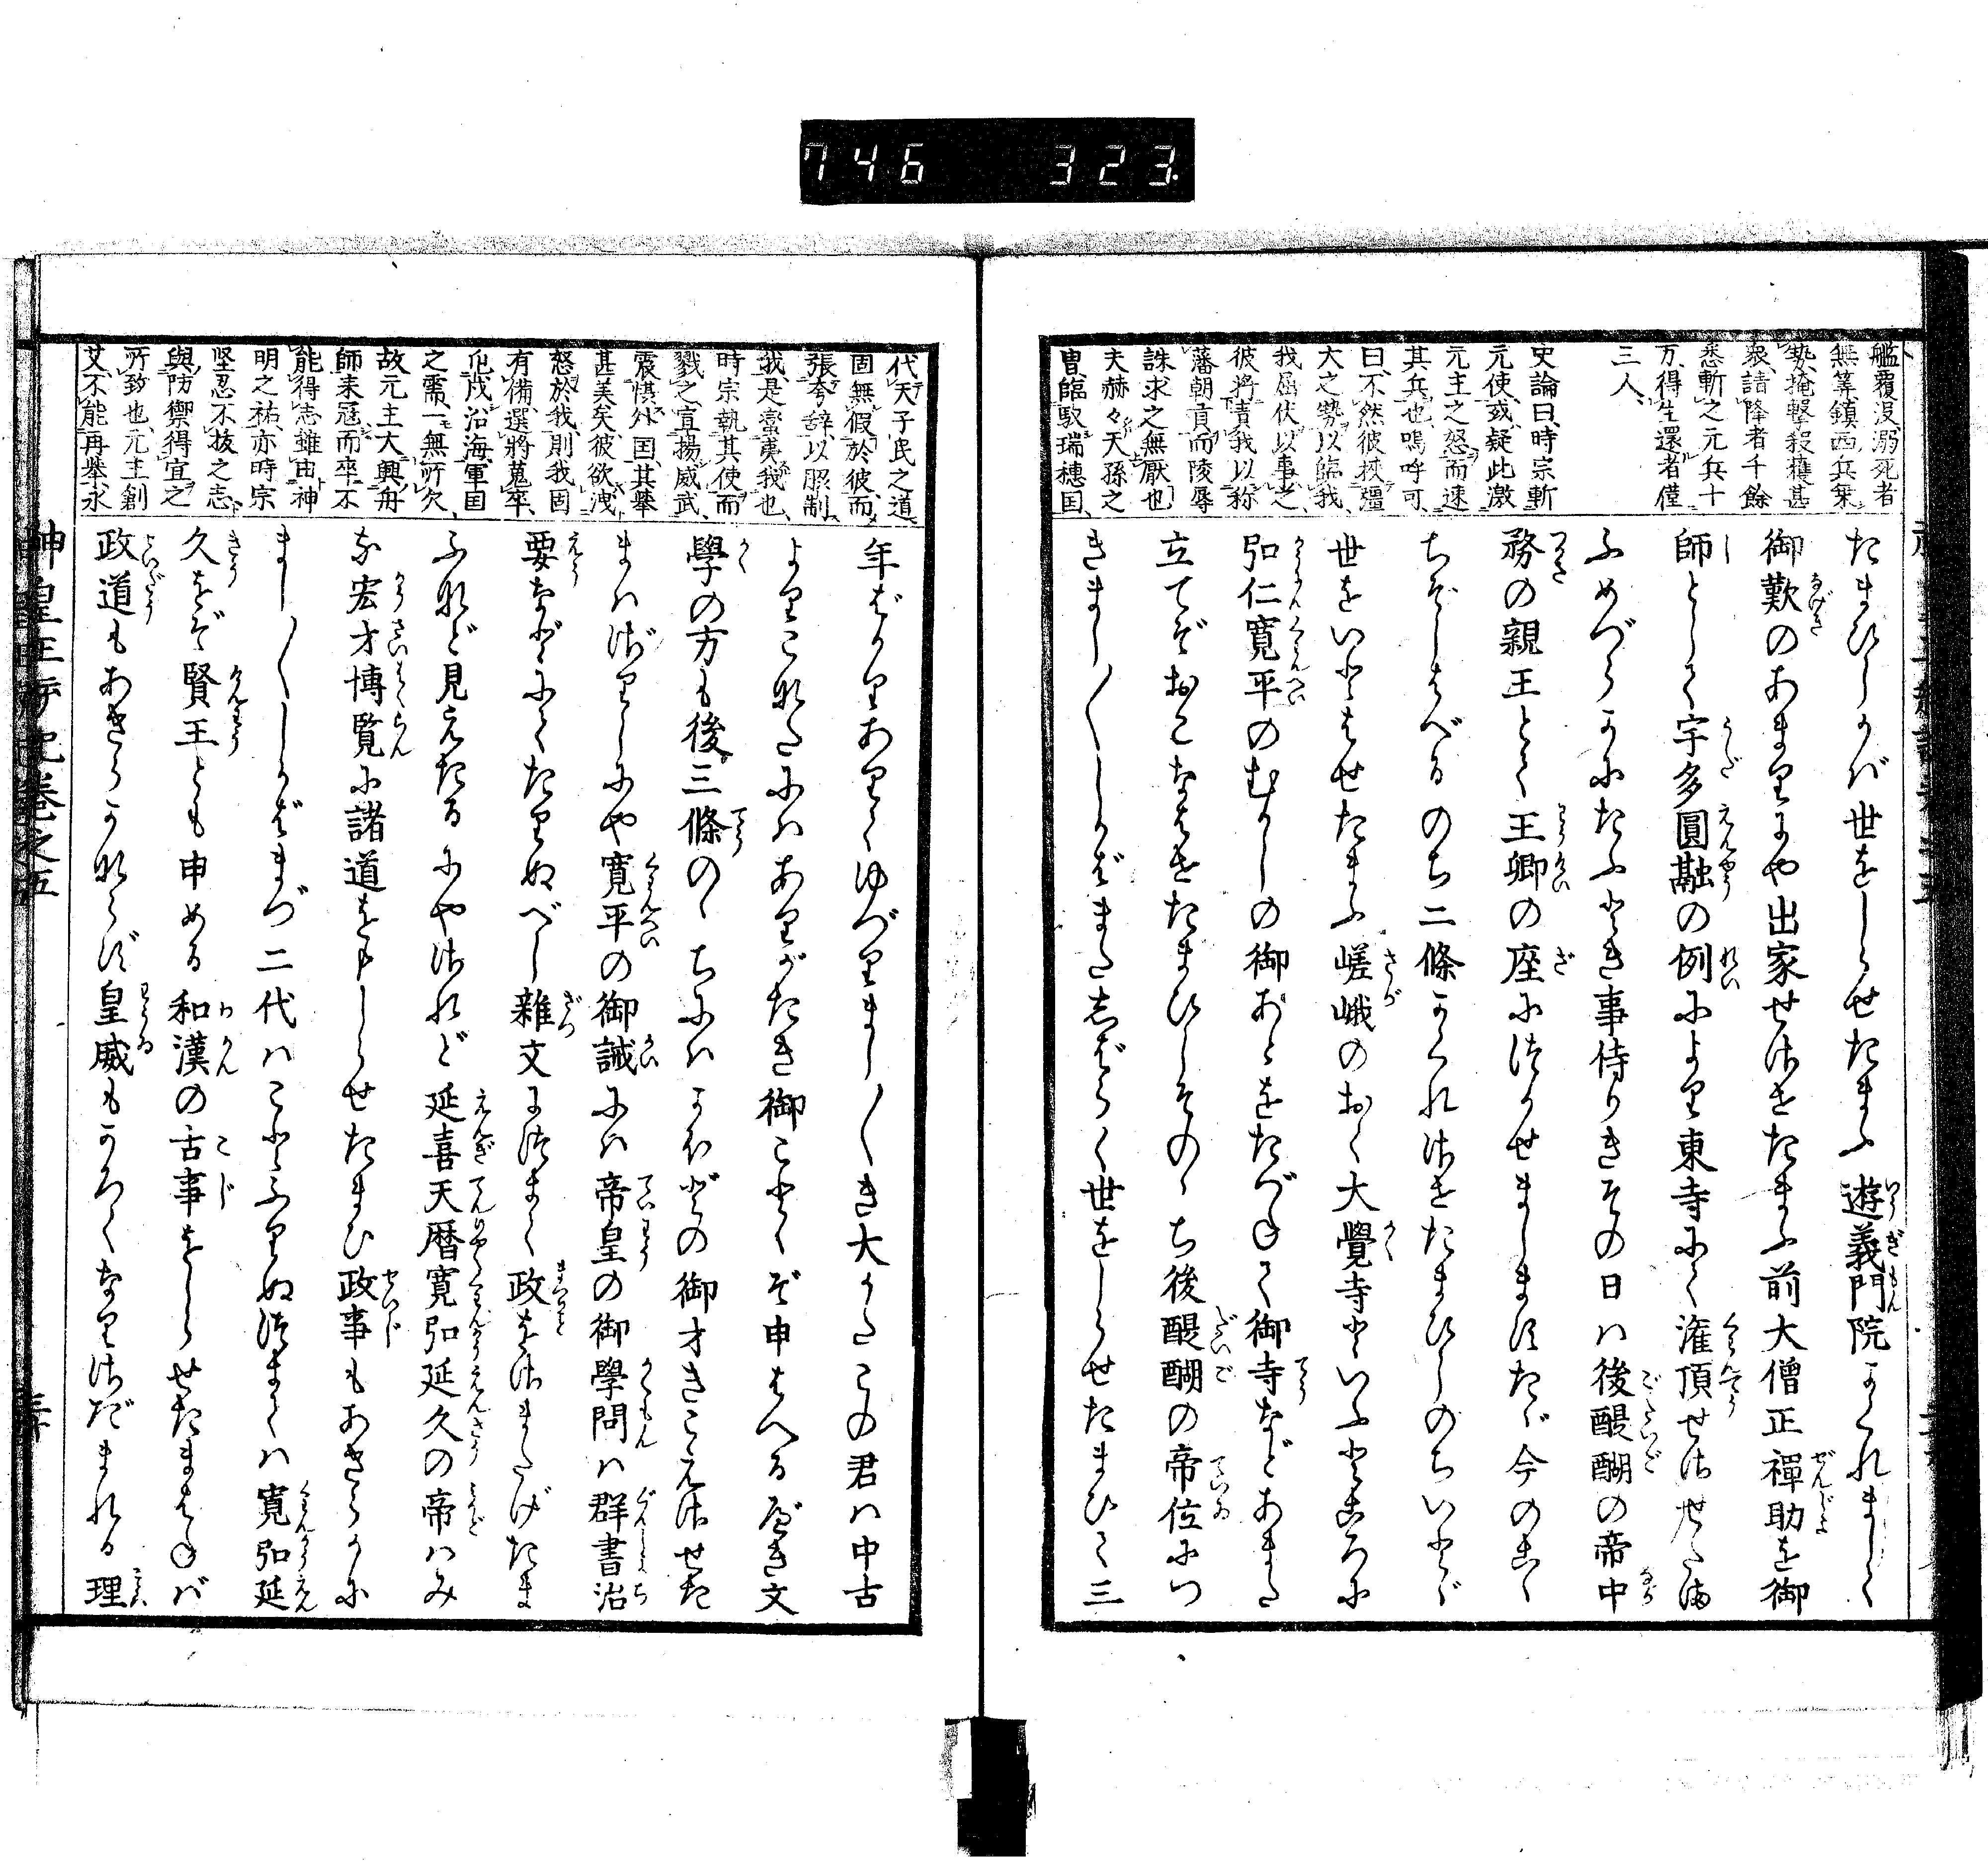 746 323
艦覆没、溺死者
無筭鎮西兵乗
勢掩撃殺獲甚
衆請降者千餘
悉斬之元兵十
万、得生還者僅
三人、
史論曰、時宗斬
元使、或疑此激
元主之怒而速
其兵也、嗚呼可
曰不然彼挾彊
大之勢以臨我、
我屈伏以事之、
彼将責我以称
藩朝貢而陵辱
誅求之無厭也
夫赫々天孫之
曽臨馭瑞穂国、
たまひしかば世をしらせたまふ遊義門院かくれまして
御歎のあまりにや出家せさせたまふ前大僧正禪助を御
師として宇多圓融の例により東寺にて潅頂せさせたま
ふめづらかにたふとき事侍りきその日は後醍醐の帝中
務の親王とて王卿の座につかせまします
たゞ今のこゝ
ちぞしはべるのち二條かくれさせたまひしのちいとゞ
世をいとはせたまふ嵯峨のおく大覺寺といふところに
弘仁寛平のむかしの御あとをたづねて御寺などあまた
立てぞおこなはせたまひしそのゝち後醍醐の帝位につ
きまし〱しかばまたしばらく世をしらせたまひて三
代天子民之道
固無假於彼、而
張夸辞、以脅制
我、是蛮夷我也、
時宗執其使而
戮之宣揚威武、
震慴外国、其挙
甚美矣、彼欲洩
怒於我、則我固
有備、選将蒐卒、
戍沿海、軍国
之需、一無所欠、
故元主大興舟
師来寇而卒不
能得志雖由神
明之祐、亦時宗
堅忍不抜之志、
與防禦得宜之
所致也元主創
艾不能再挙、永
年ばかりありてゆづりまし〱き大かたこの君は中古
よりこなたにはありがたき御ことゝぞ申はべるべき文
學の方も後三條のゝちにはかほどの御才きこえさせた
まはざりしにや寛平の御誡には帝皇の御學問は群書治
要などにてたりぬべし雜文につきて政をさまたげたま
ふなど見えたるにやされど延喜天暦寛弘延久の帝はみ
な宏才博覧に諸道をもしらせたまひ政事もあきらかに
まし〱しかばまづ二代はことふりぬつぎては寛弘延
久をぞ賢王とも申める和漢の古事をしらせたまはねば
政道もあきらかならず皇威もかろくなりさだまれる理
神皇正統記巻之五